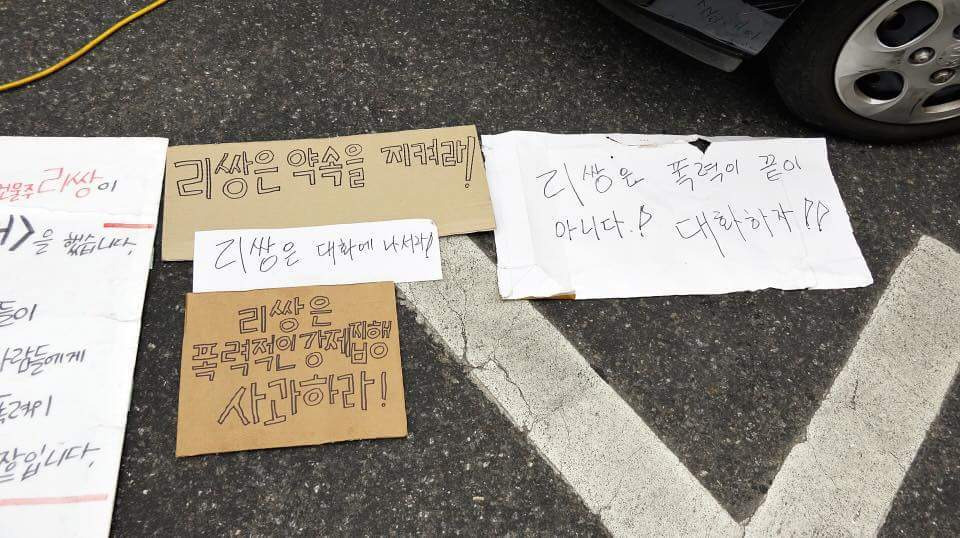 건물주 리쌍이
>을 했습니다.
들이
사람들에게
폭력이
리쌍은 약속을 지켜라!
리쌍은 대화에 나서라!
리쌍은
폭력적인 강제집행
사과하라!
리쌍은 폭력이 끝이
아니다.! 대화하자!!